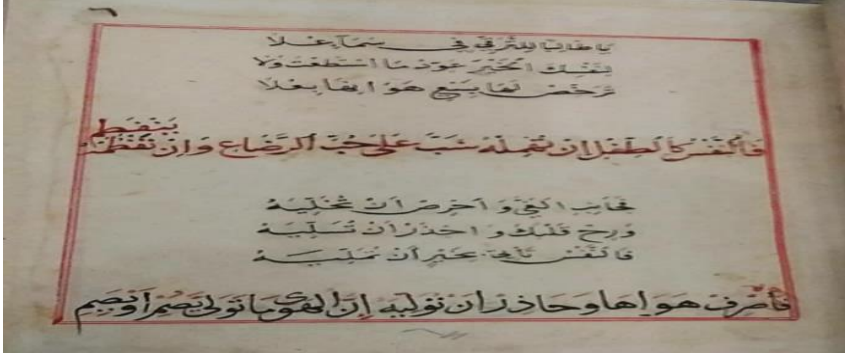 ٦
يَا طَالِبًا لِلتَّرَقِّي فِي سَمَآءِ عُلَا
لِنَفْسِكَ الْخَيْرَ عَوِّدْ مَا اسْتَطَعْتَ وَلَا
تُرَخِّصْ لَهَا
فَالنَّفْسُ كَالطِّفْلِ اِنْ تُهْمِلْهُ شَبَّ عَلَى حُبِّ الرَّضَاعِ وَاِنْ تَفْطِمْهُ يَنْفَطِمِ
فَجَانِبِ الْغَيَّ وَ احْرِصْ اَنْ تُخَلِّيَهُ
قَلْبَكَ وَ احْذَرْ اَنْ تُسَلِّيَهُ
فَالنَّفْسُ اَنْ تُمَلِّيَهُ
فَاصْرِفْ هَوَاهَا وَحَاذِرْ اَنْ تُوَلِّيَهُ اِنَّ الْهَوَى مَا تَوَلَّى يُصْمِ اَوْ يَصِمِ